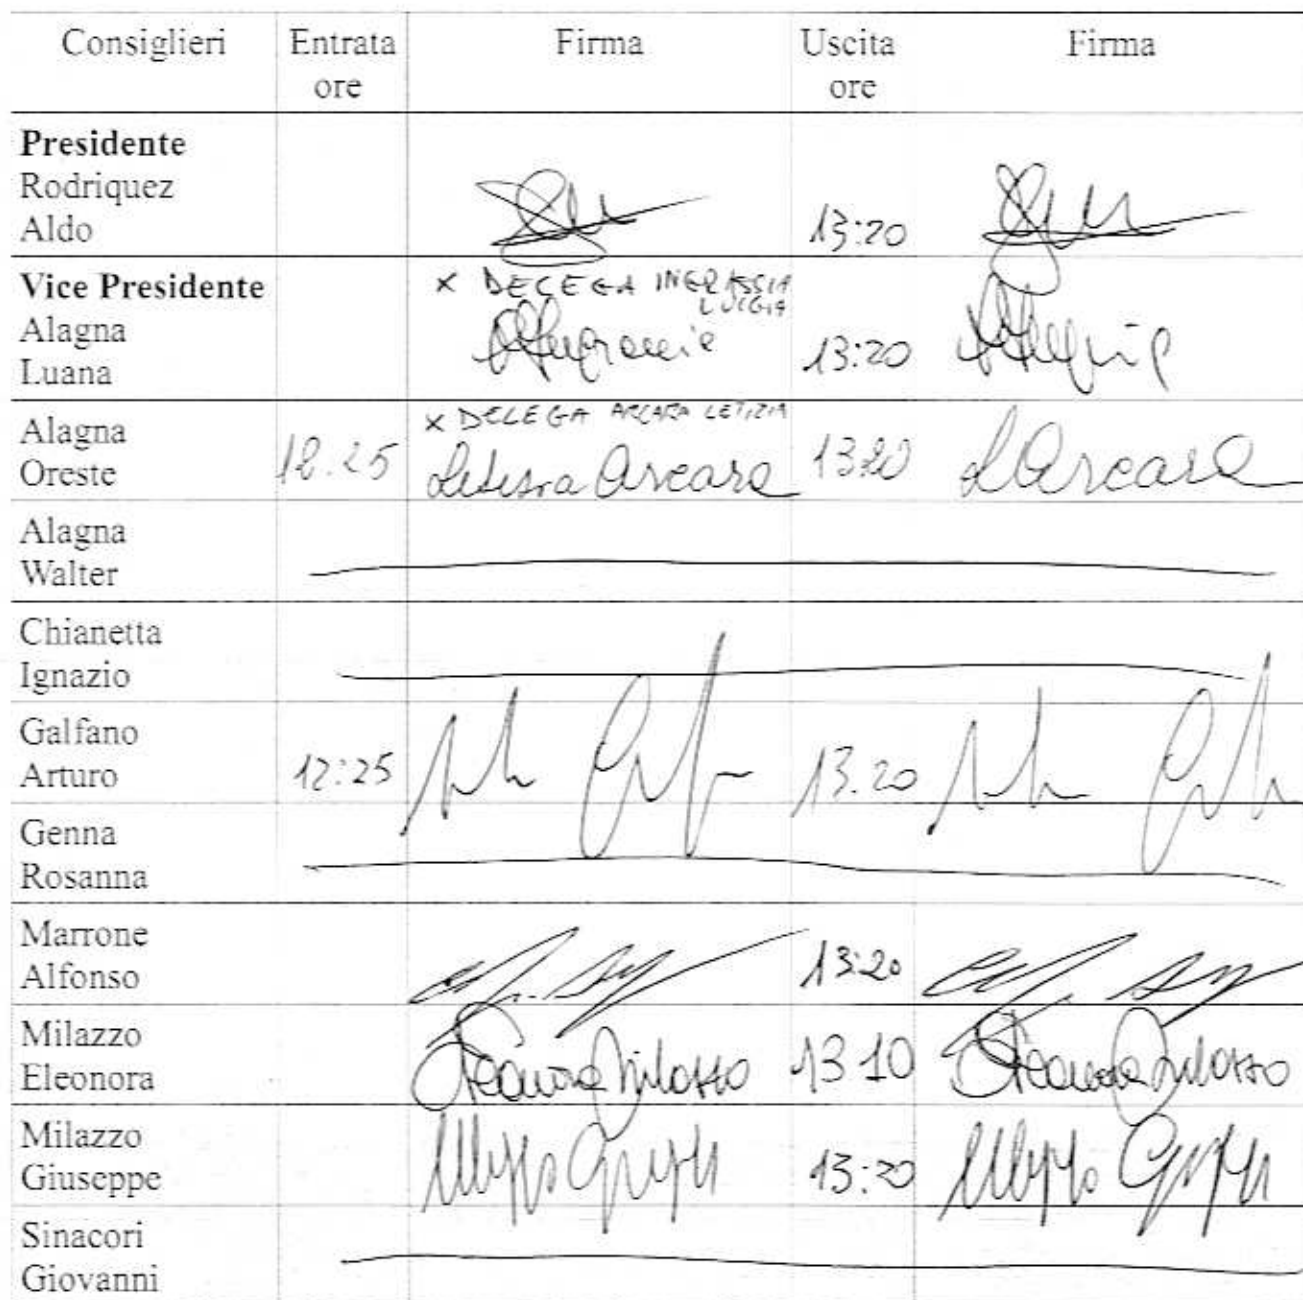 Consiglieri Entrata ore Firma Uscita ore Firma
Presidente
Rodriquez
Aldo 13:20
Vice Presidente x DELEGA INGRASSIA
LUIGIA
Alagna
Luana 13:20
Alagna x DELEGA ARCARA LETIZIA
Oreste 12.25 Letizia Arcara 13:20 L Arcara
Alagna
Walter
Chianetta
Ignazio
Galfano
Arturo 12:25 13.20
Genna
Rosanna
Marrone
Alfonso 13:20
Milazzo
Eleonora Eleonora Milazzo 13 10 Eleonora Milazzo
Milazzo
Giuseppe 13:20
Sinacori
Giovanni